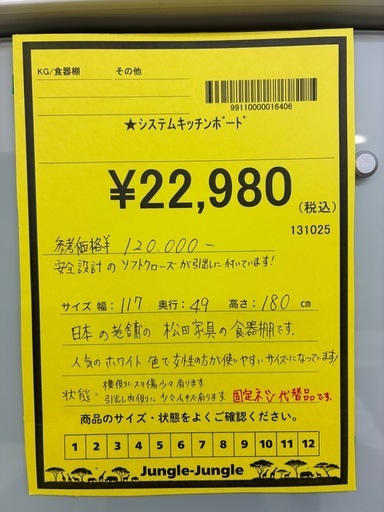 KG/食器棚 その他
99110000016406
★システムキッチンボード
¥22,980 (税込)
131025
参考価格¥120.000-
安全設計のソフトクローズが引出しに付いています!
サイズ 幅: 117 奥行: 49 高さ: 180 cm
日本の老舗の松田家具の食器棚です。
人気のホワイト色で女性の方が使いやすいサイズになっています!
横側にスリ傷少々有ります
状態: 引出し内側に、少々人キズ有ります 固定ネジ代替品です。
商品のサイズ・状態をよくご確認ください。
1 2 3 4 5 6 7 8 9 10 11 12
Jungle-Jungle